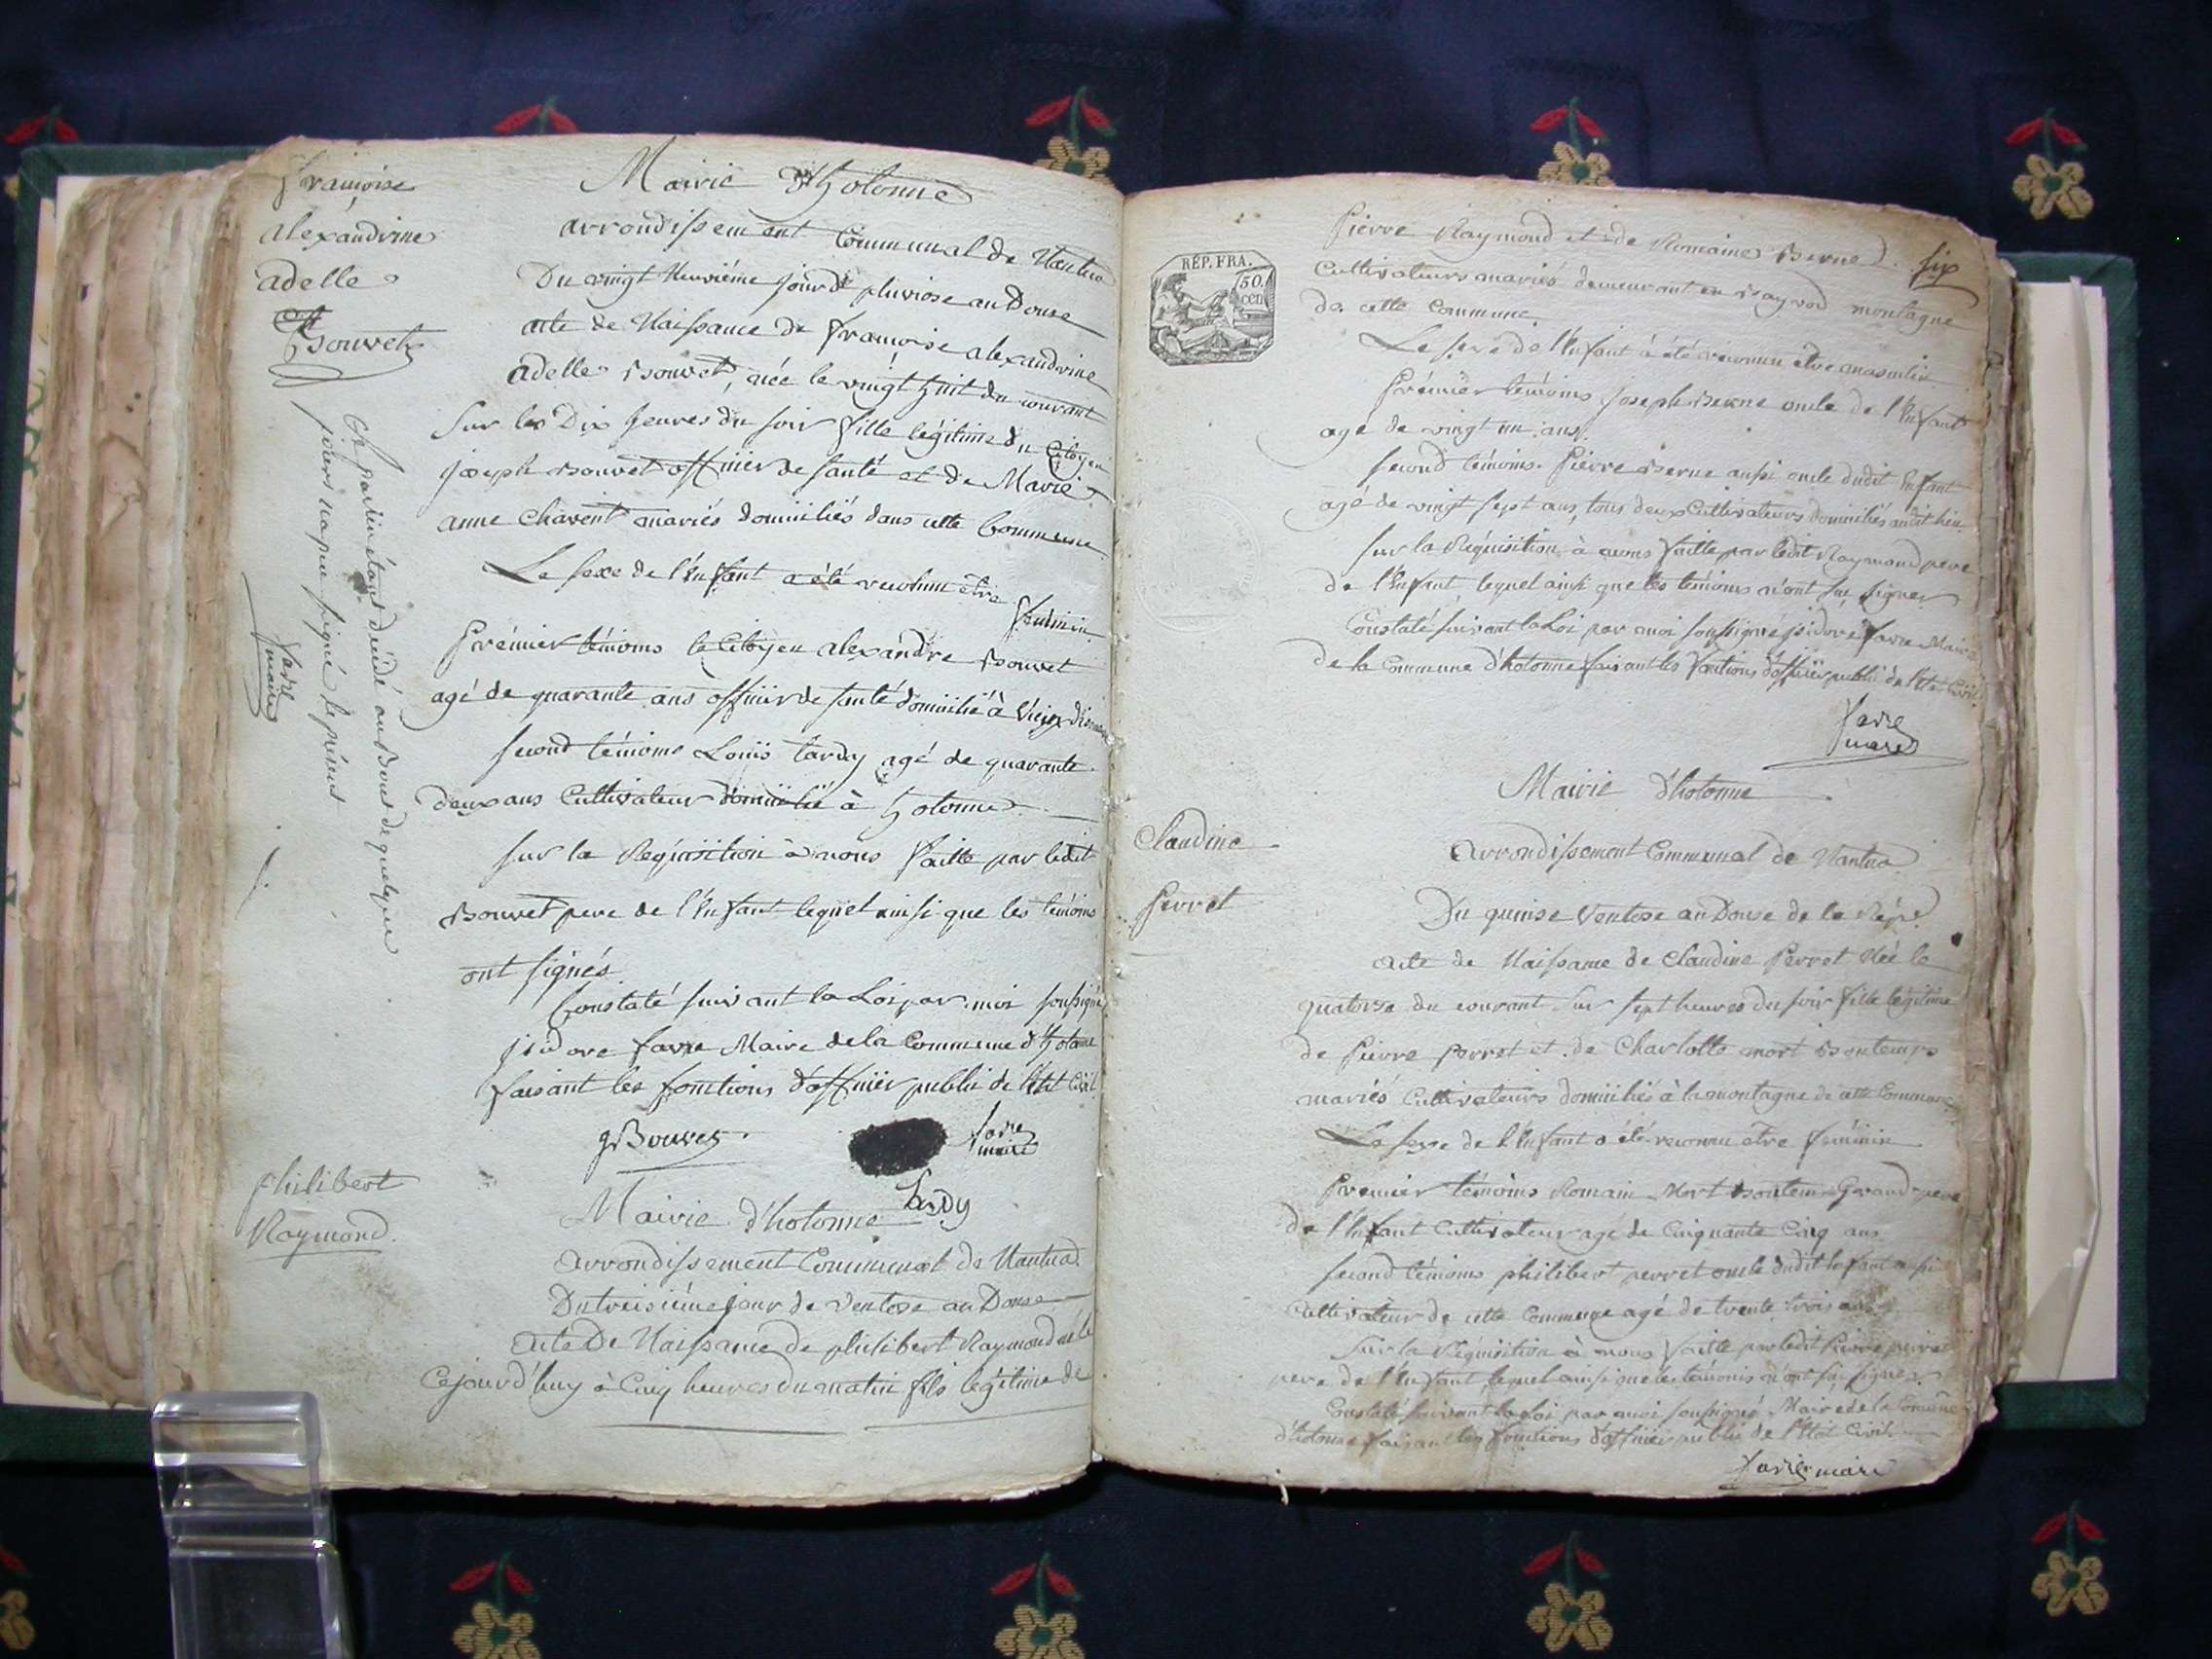 françoise
alexandrine
adelle
Bouvet
Mairie d'hotonne
arrondissement Communal de Nantua
Du vingt Neuvième jour de pluviose an Douse
acte de Naissance de françoise alexandrine
adelle Bouvet, née le vingt huit du courant
sur les Dix heures du soir fille légitime du Citoyen
joseph Bouvet officier de santé et de Marie
anne Chavent mariés domiciliés dans cette Commune
Le sexe de l'Enfant a été reconnu être féminin
Prémier témoins le Citoyen alexandre Bouvet
agé de quarante ans officier de santé domicilié à
second témoins Louis tardy agé de quarante
deux ans Cultivateur domicilié à hotonne
sur la Réquisition à nous faitte par ledit
Bouvet pere de l'Enfant lequel ainsi que les témoins
ont signés
Constaté suivant la Loi par moi soussigné
jsidore favre Maire de la Commune d'hotonne
faisant les fonctions d'officier public de l'état Civil
Bouvet
favre
maire
tardy
Ce parrin étant décidé au Bout de quelque
jours na peu signé le présent
favre
maire
philibert
Raymond.
Mairie d'hotonne
arrondissement Communal de Nantua
Du troisième jour de Ventose an Douse
acte De Naissance de philibert Raymond né le
Cejourd'huy à Cinq heures du matin fils légitime de
six
RÉP. FRA.
50.
cen
Pierre Raymond et de Romaine Berne
Cultivateurs mariés demeurant en montagne
de cette Commune
Le sexe de l'Enfant à été reconnu etre masculin
Prémier témoins joseph Berne oncle de l'Enfant
agé de vingt un ans.
second témoins. Pierre Berne aussi oncle dudit Enfant
agé de vingt sept ans, tous deux Cultivateurs domiciliés audit lieu
sur la Réquisition à nous faitte par ledit Raymond pere
de l'Enfant, lequel ainsi que les témoins n'ont su signer
Constaté suivant la Loi par moi soussigné jsidore favre Maire
de la Commune d'hotonne faisant les fonctions d'officier public de l'état Civil.
favre
maire
Claudine
Perret
Mairie d'hotonne
Arrondissement Communal de Nantua
Du quinse Ventose an Douse de la
acte de Naissance de Claudine Perret Née le
quatorse du courant sur sept heures du soir fille légitime
de Pierre perret et de Charlotte mort Bontemps
mariés Cultivateurs domiciliés à la montagne de cette Commune
Le sexe de l'Enfant a été reconnu être féminin
Premier témoins Romain Mort Bontems Grand pere
de l'Enfant Cultivateur agé de Cinquante Cinq ans
second témoins philibert perret oncle dudit Enfant aussi
Cultivateur de cette Commune agé de trente trois ans
Sur la Réquisition à nous faitte par ledit Pierre perret
pere de l'Enfant lequel ainsi que les témoins n'ont su signer.
Constaté suivant la Loi par moi soussigné Maire de la Comune
d'hotonne faisant les fonctions d'officier public de l'Etat Civil.
favre maire